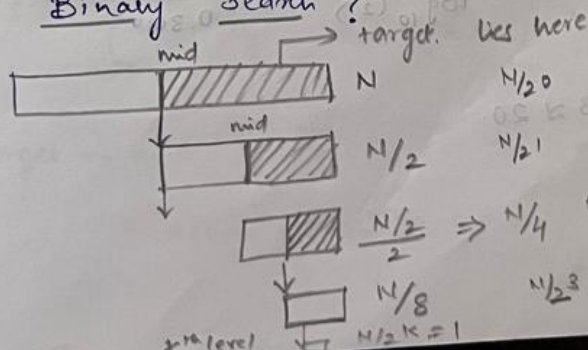 Binary Search ?
target. lies here
mid
N N/2⁰
mid
N/2 N/2¹
N/2
2 ⇒ N/4
N/8 N/2³
level N/2ᴷ = 1